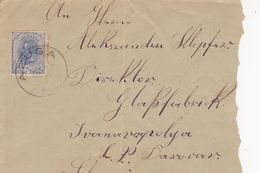 An Herrn
Aleksander Klopfer
Direktor
Glaßfabrik
Ivanovopolje
L. P. Daruvar